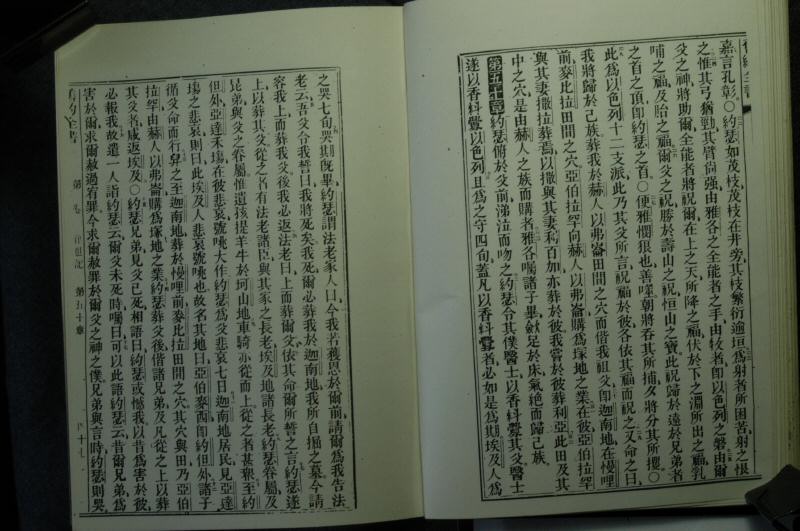 嘉言孔彰○約瑟如茂枝茂枝在井旁其枝繁衍逾垣爲射者所困苦射之恨
之惟其弓猶勁其臂尙強由雅各之全能者之手由牧者卽以色列之磐由爾
父之神將助爾全能者將祝爾在上之天所降之福伏於下之淵所出之福乳
哺之福及胎之福爾父之祝勝於壽山之祝恒山之寶此祝歸於遠於兄弟者
之首之頂卽約瑟之首○便雅憫狼也善㗖朝將吞其所捕夕將分其所攫○
此爲以色列十二支派此乃其父所言祝福於彼各依其福而祝之又命之曰
我將歸於己族葬我於赫人以弗崙田間之穴而偕我祖父卽迦南地在慢哩
前麥比拉田間之穴亞伯拉罕向赫人以弗崙購爲塚地之業在彼亞伯拉罕
與其妻撒拉葬焉以撒與其妻利百加亦葬於彼我嘗於彼葬利亞此田及其
中之穴是由赫人之族而購者雅各囑諸子畢歛足於床氣絶而歸己族
第五十章約瑟俯於父前涕泣而吻之約瑟令其僕醫士以香料釁其父醫士
遂以香料釁以色列且爲之守四旬蓋凡以香料釁者必如是爲期埃及人爲
之哭七旬哭其旣畢約瑟謂法老家人曰今我若獲恩於爾前請爾爲我告法
老云吾父令我誓曰我將死矣我死爾必葬我於迦南地我所自掘之墓今請
容我上而葬我父後我必返法老曰上而葬爾父依其命爾所誓之言約瑟遂
上以葬其父從之者有法老諸臣與其家之長老埃及地諸長老約瑟眷屬及
兄弟與父之眷屬惟遺孩提羊牛於坷山地車騎亦從而上從之者甚衆至約
但外亞達禾場在彼悲哀號咷大作約瑟爲父悲哀七日迦南地居民見亞達
場之悲哀則曰此埃及人悲哀號咷也故名其地曰亞伯麥西卽約但外諸子
循父命而行舁之至迦南地葬於慢哩前麥比拉田間之穴其穴與田乃亞伯
拉罕由赫人以弗崙購爲塚地之業約瑟葬父後偕諸兄弟及凡從之上以葬
其父者咸返埃及○約瑟兄弟見父已死相語曰約瑟或憾我以昔爲害於彼
必報我故遣一人詣約瑟云爾父未死時囑曰可以此語約瑟云昔爾兄弟爲
害於爾求爾赦過宥罪今求爾赦罪於爾父之神之僕兄弟與言時約瑟則哭
舊約全書　創世記　第五十章